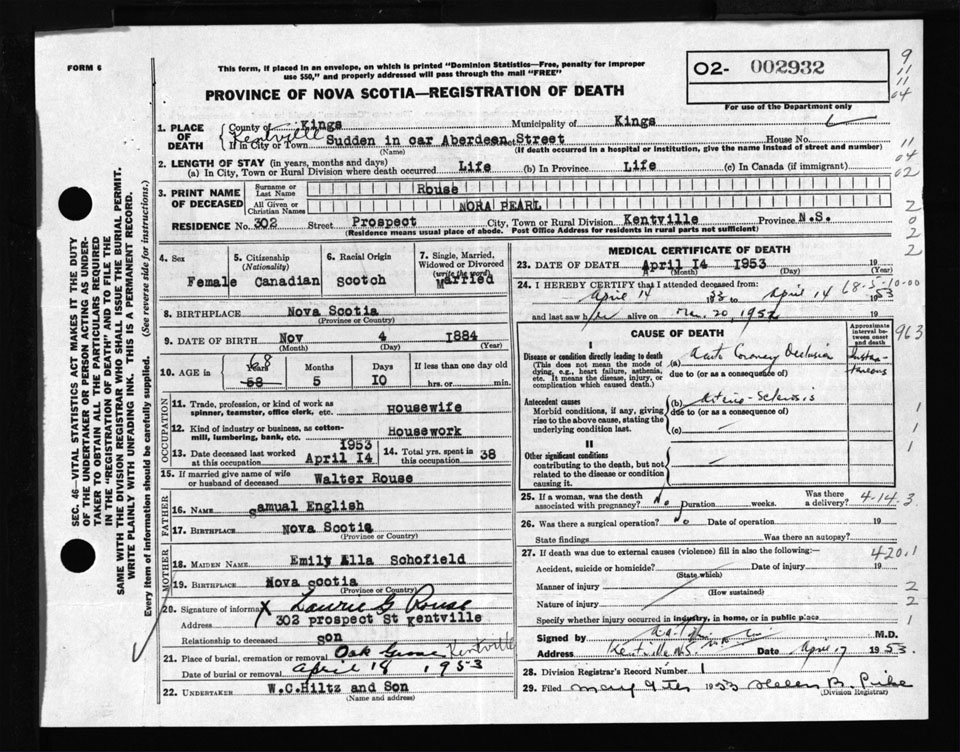 FORM 6
This form, if placed in an envelope, on which is printed "Dominion Statistics—Free, penalty for improper
use $50," and properly addressed will pass through the mail "FREE"
PROVINCE OF NOVA SCOTIA—REGISTRATION OF DEATH
02- 002932
For use of the Department only
9
11
11
04
1. PLACE OF DEATH
County of Kings Municipality of Kings
Kentville
If in City or Town Sudden in car Aberdeen Street House No.
(Name) (If death occurred in a hospital or institution, give the name instead of street and number)
11
04
02
2. LENGTH OF STAY (in years, months and days)
(a) In City, Town or Rural Division where death occurred Life (b) In Province Life (c) In Canada (if immigrant)
3. PRINT NAME OF DECEASED
Surname or Last Name Rouse
All Given or Christian Names NORA PEARL
RESIDENCE No. 302 Street Prospect City, Town or Rural Division Kentville Province N.S.
(Residence means usual place of abode. Post Office Address for residents in rural parts not sufficient)
2
0
2
2
4. Sex
Female
5. Citizenship
(Nationality)
Canadian
6. Racial Origin
Scotch
7. Single, Married, Widowed or Divorced
(write the word)
Married
8. BIRTHPLACE Nova Scotia
(Province or Country)
9. DATE OF BIRTH Nov 4 1884
(Month) (Day) (Year)
10. AGE in
68
Years
58
Months
5
Days
10
If less than one day old
hrs. or min.
OCCUPATION
11. Trade, profession, or kind of work as
spinner, teamster, office clerk, etc. Housewife
12. Kind of industry or business, as cotton-
mill, lumbering, bank, etc. Housework
13. Date deceased last worked
at this occupation April 14 1953
14. Total yrs. spent in
this occupation 38
15. If married give name of wife
or husband of deceased Walter Rouse
FATHER
16. NAME Samual English
17. BIRTHPLACE Nova Scotia
(Province or Country)
MOTHER
18. MAIDEN NAME Emily Ella Schofield
19. BIRTHPLACE Nova Scotia
(Province or Country)
20. Signature of informant X Laurie G Rouse
Address 302 prospect St Kentville
Relationship to deceased son
21. Place of burial, cremation or removal Oak Grove Kentville
Date of burial or removal April 18 1953
22. UNDERTAKER W.C.Hiltz and Son
(Name and address)
MEDICAL CERTIFICATE OF DEATH
23. DATE OF DEATH April 14 1953 19
(Month) (Day) (Year)
24. I HEREBY CERTIFY that I attended deceased from: 68-5-10-00
April 14 1953 to April 14 1953
and last saw her alive on 20, 1952
963
CAUSE OF DEATH
Approximate interval between onset and death
I
Disease or condition directly leading to death
(This does not mean the mode of
dying, e.g., heart failure, asthenia,
etc. It means the disease, injury, or
complication which caused death.)
(a) Acute Coronary Occlusion Instantaneous
due to (or as a consequence of)
Antecedent causes
Morbid conditions, if any, giving
rise to the above cause, stating the
underlying condition last.
(b) Arterio-Sclerosis
due to (or as a consequence of)
(c)
1
1
II
Other significant conditions
contributing to the death, but not
related to the disease or condition
causing it.
1
25. If a woman, was the death
associated with pregnancy? No Duration weeks. Was there
a delivery? 4-14.3
26. Was there a surgical operation? No Date of operation 19
State findings Was there an autopsy?
27. If death was due to external causes (violence) fill in also the following:— 420.1
Accident, suicide or homicide? Date of injury 19
(State which)
Manner of injury 2
(How sustained)
Nature of injury 2
Specify whether injury occurred in industry, in home, or in public place 1
Signed by M.D.
Address Kentville N.S. Date April 17 1953.
28. Division Registrar's Record Number 1
29. Filed May 9 1953 Helen B. Pike
(Division Registrar)
SEC. 46—VITAL STATISTICS ACT MAKES IT THE DUTY
OF THE UNDERTAKER OR PERSON ACTING AS UNDER-
TAKER TO OBTAIN ALL THE PARTICULARS REQUIRED
IN THE "REGISTRATION OF DEATH" AND TO FILE THE
SAME WITH THE DIVISION REGISTRAR WHO SHALL ISSUE THE BURIAL PERMIT.
WRITE PLAINLY WITH UNFADING INK. THIS IS A PERMANENT RECORD.
Every item of information should be carefully supplied. (See reverse side for instructions.)